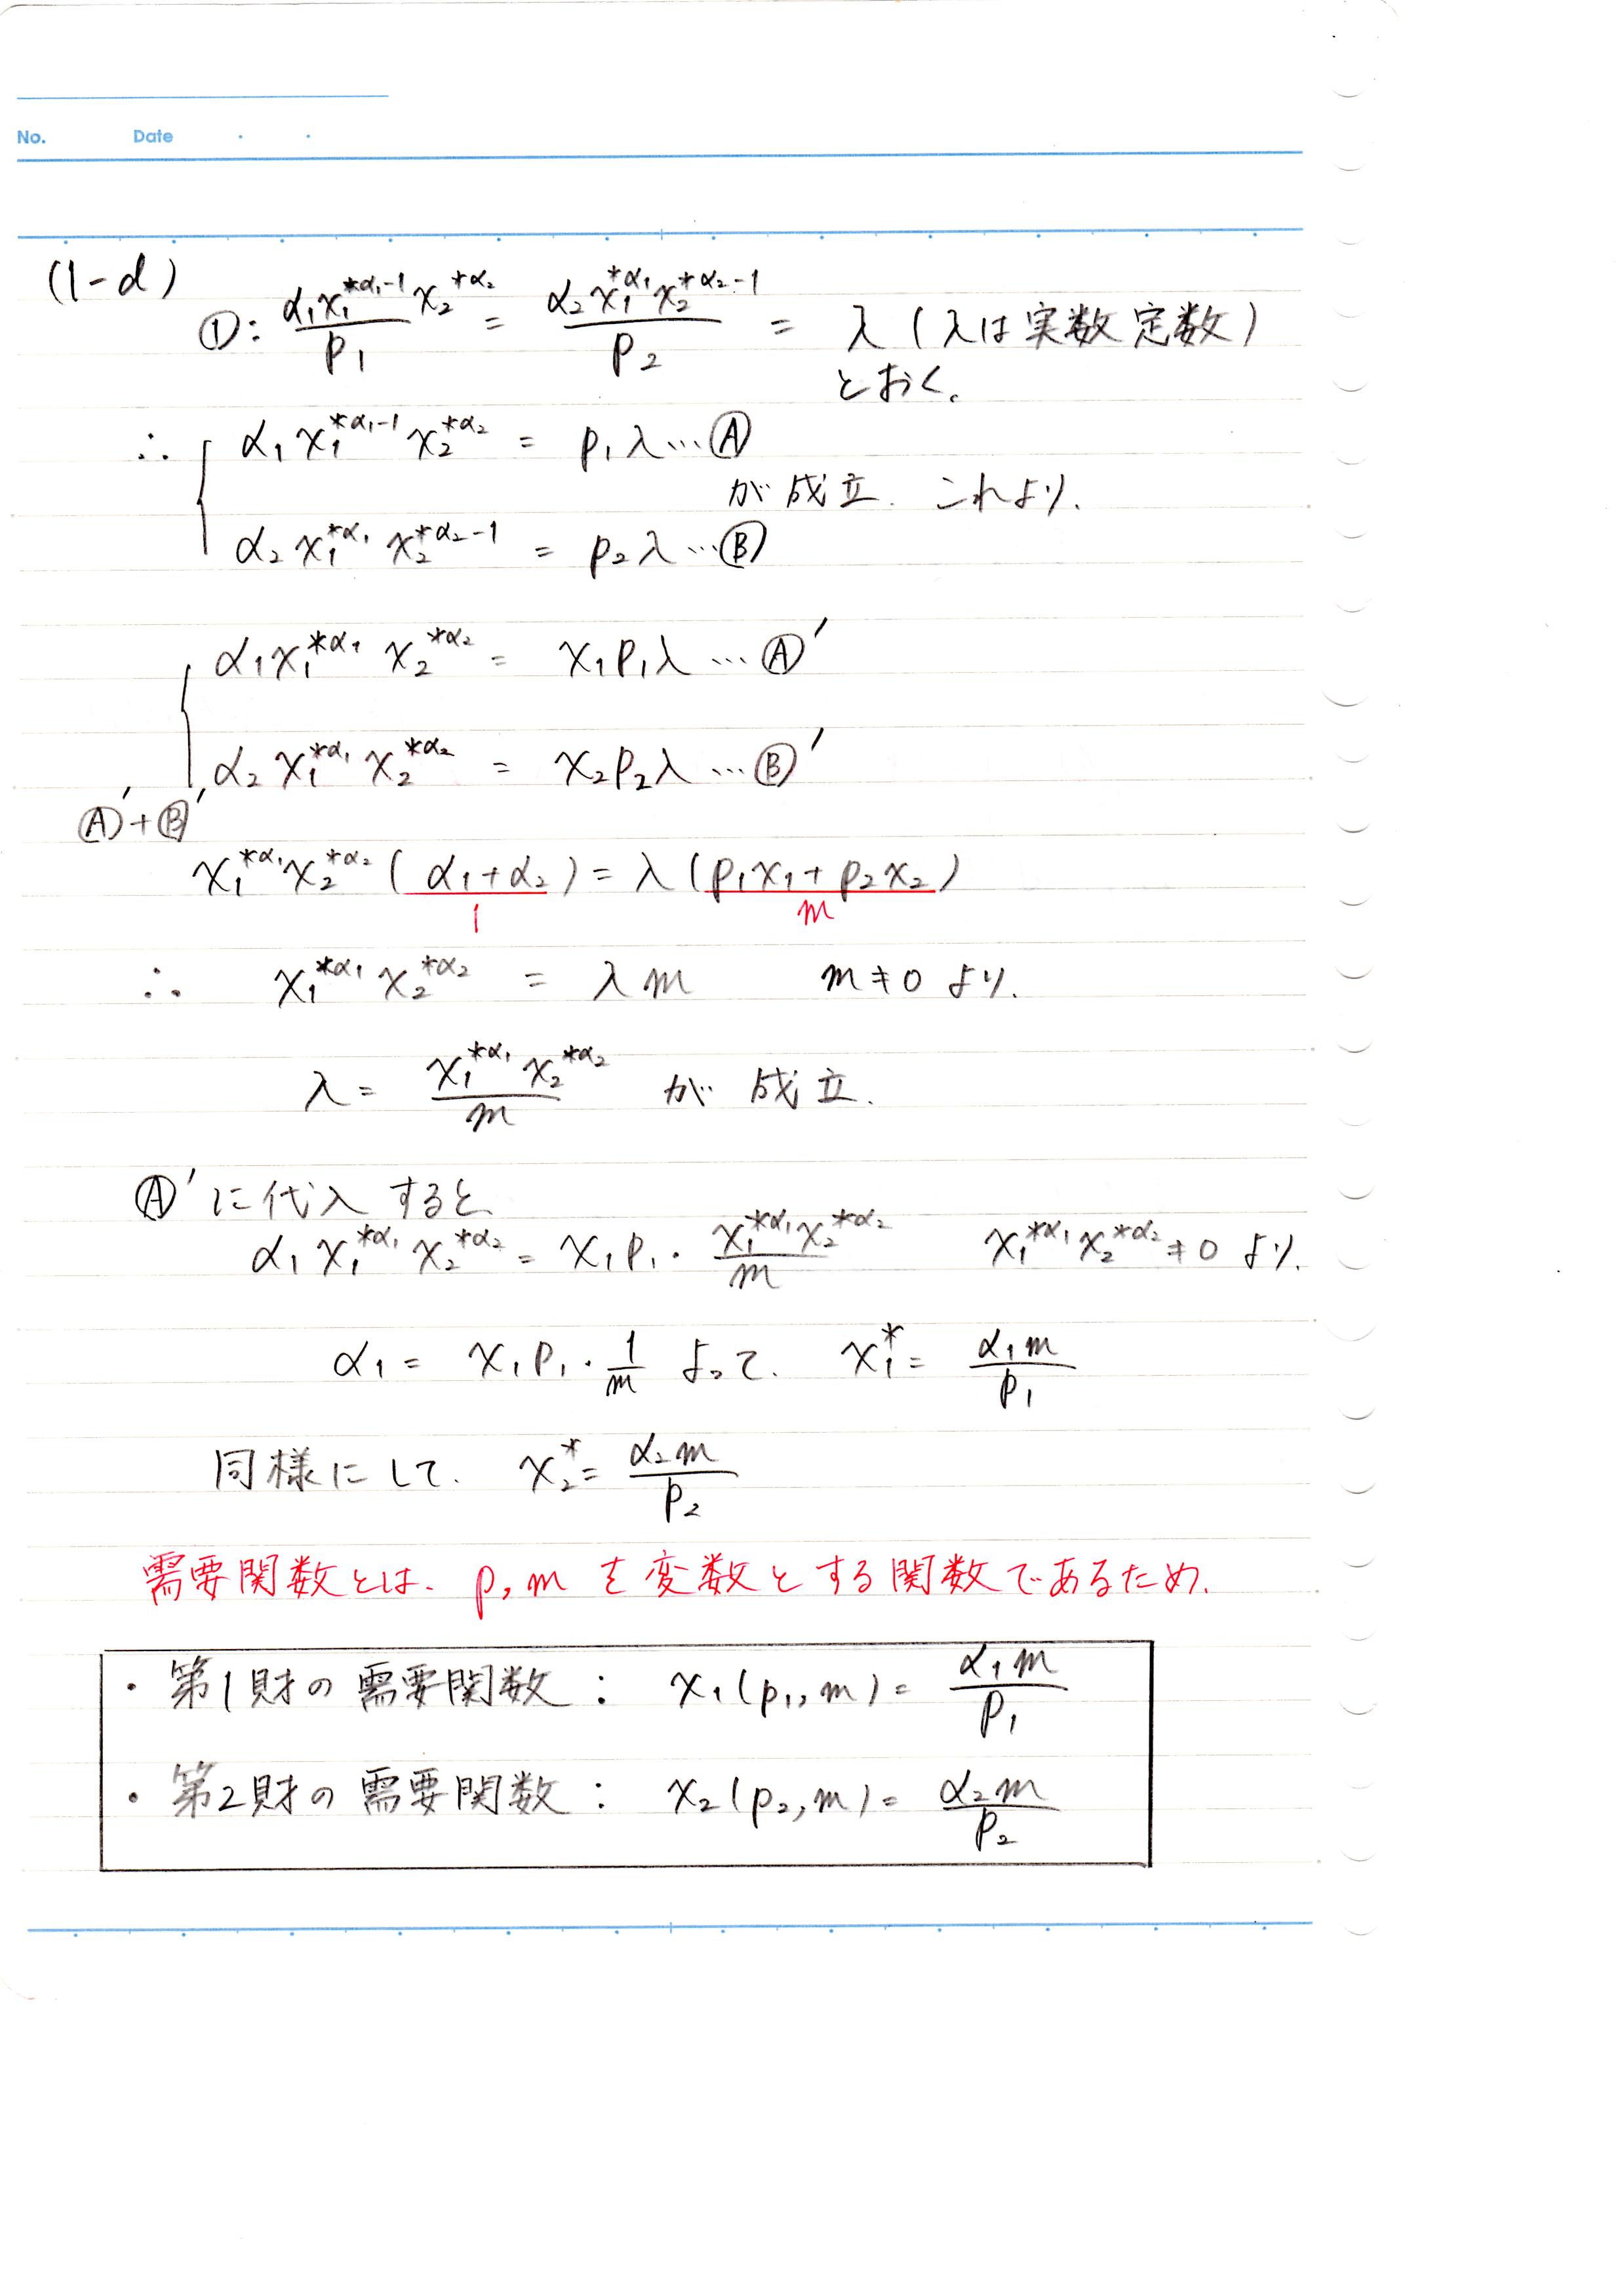 No. Date
(1-d)
①: α₁x₁*^(α₁-1) x₂*^(α₂) / p₁ = α₂x₁*^(α₁) x₂*^(α₂-1) / p₂ = λ (λは実数定数)
とおく。
∴ { α₁x₁*^(α₁-1) x₂*^(α₂) = p₁λ…Ⓐ
が成立. これより.
α₂x₁*^(α₁) x₂*^(α₂-1) = p₂λ…Ⓑ
{ α₁x₁*^(α₁) x₂*^(α₂) = x₁p₁λ…Ⓐ′
α₂x₁*^(α₁) x₂*^(α₂) = x₂p₂λ…Ⓑ′
Ⓐ′+Ⓑ′
x₁*^(α₁) x₂*^(α₂) (α₁+α₂) = λ(p₁x₁+p₂x₂)
1 m
∴ x₁*^(α₁) x₂*^(α₂) = λm m≠0 より.
λ = x₁*^(α₁) x₂*^(α₂) / m が成立.
Ⓐ′に代入すると
α₁x₁*^(α₁) x₂*^(α₂) = x₁p₁・x₁*^(α₁) x₂*^(α₂) / m x₁*^(α₁) x₂*^(α₂) ≠0 より.
α₁ = x₁p₁・1/m よって. x₁* = α₁m / p₁
同様にして. x₂* = α₂m / p₂
需要関数とは、p,m を変数とする関数であるため.
・第1財の需要関数: x₁(p₁,m) = α₁m / p₁
・第2財の需要関数: x₂(p₂,m) = α₂m / p₂